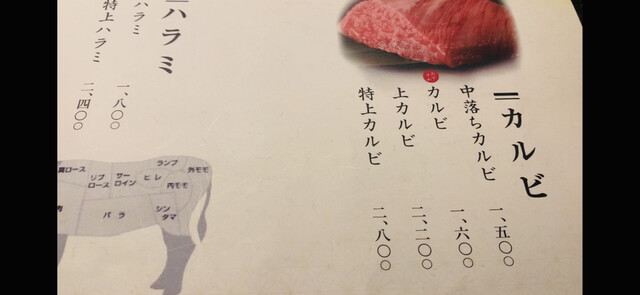 カルビ
中落ちカルビ 一、五〇〇
カルビ 一、六〇〇
上カルビ 二、二〇〇
特上カルビ 二、八〇〇
ハラミ
ハラミ 一、八〇〇
特上ハラミ 二、四〇〇
肩ロース
リブロース
サーロイン
ヒレ
ランプ
外モモ
内モモ
バラ
シンタマ